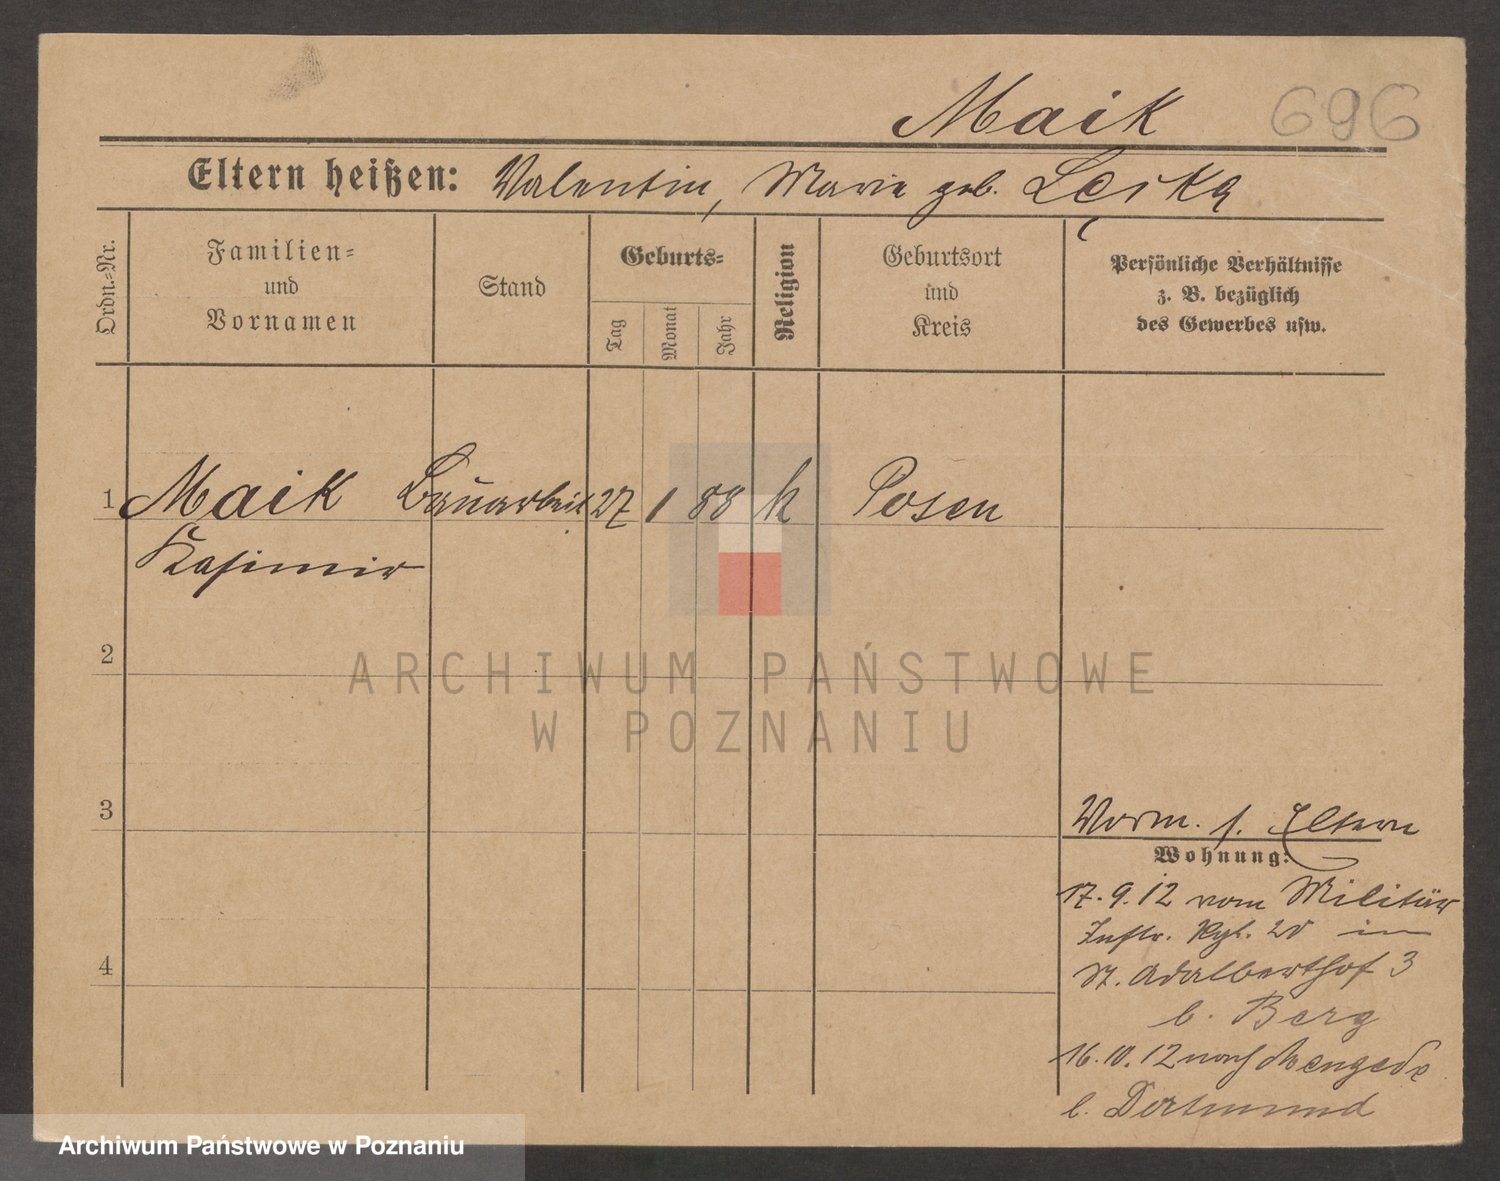 Maik 696
Eltern heißen: Valentin, Marie geb. Lęska
Ordn.-Nr.
Familien-
und
Vornamen
Stand
Geburts-
Tag
Monat
Jahr
Religion
Geburtsort
und
Kreis
Persönliche Verhältnisse
z. B. bezüglich
des Gewerbes usw.
1 Maik Bauarbeit 27 1 88 k Posen
Kasimir
2
ARCHIWUM PAŃSTWOWE
W POZNANIU
3
Vorm. s. Eltern
Wohnung:
17.9.12 vom Militär
Inftr. Rgt. 20 in
St. Adalberthof 3
b. Berg
4
16.10.12 nach Mengede
b. Dortmund
Archiwum Państwowe w Poznaniu